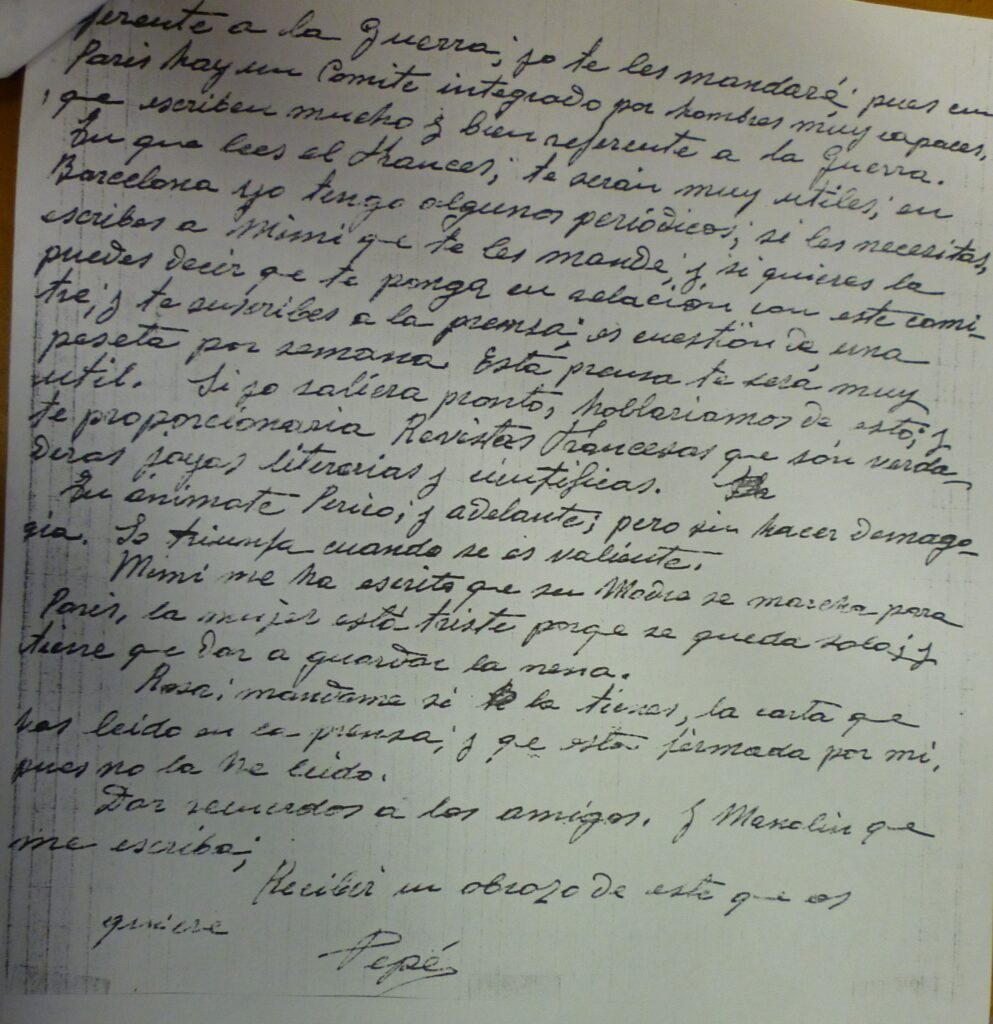 ferente a la Guerra; yo te les mandaré; pues en
Paris hay un Comite integrado por hombres muy capaces,
que escriben mucho y bien referente a la Guerra.
Tu que lees el Frances; te serán muy utiles; en
Barcelona yo tengo algunos periódicos; si les necesitas,
escribes a Mimi que te les mande; y si quieres la
puedes decir que te ponga en relación con este comi-
te; y te suscribes a la prensa; es cuestión de una
peseta por semana. Esta prensa te será muy
util. Si yo saliera pronto, hablariamos de esto; y
te proporcionaria Revistas Francesas que són verda-
deras joyas literarias y cientificas.
Tu ánimate Perico; y adelante; pero sin hacer Demago-
gia. Se triunfa cuando se es valiente.
Mimi me ha escrito que su Madre se marcha para
Paris, la mujer está triste porqe se queda sola; y
tiene que dar a guardar la nena.
Rosa; mandame si la tienes, la carta que
has leido en la prensa; y que esta firmada por mi,
pues no la he leido.
Dar recuerdos a los amigos. y Manolin que
me escriba;
Recibir un abrazo de este que os
quiere
Pepé